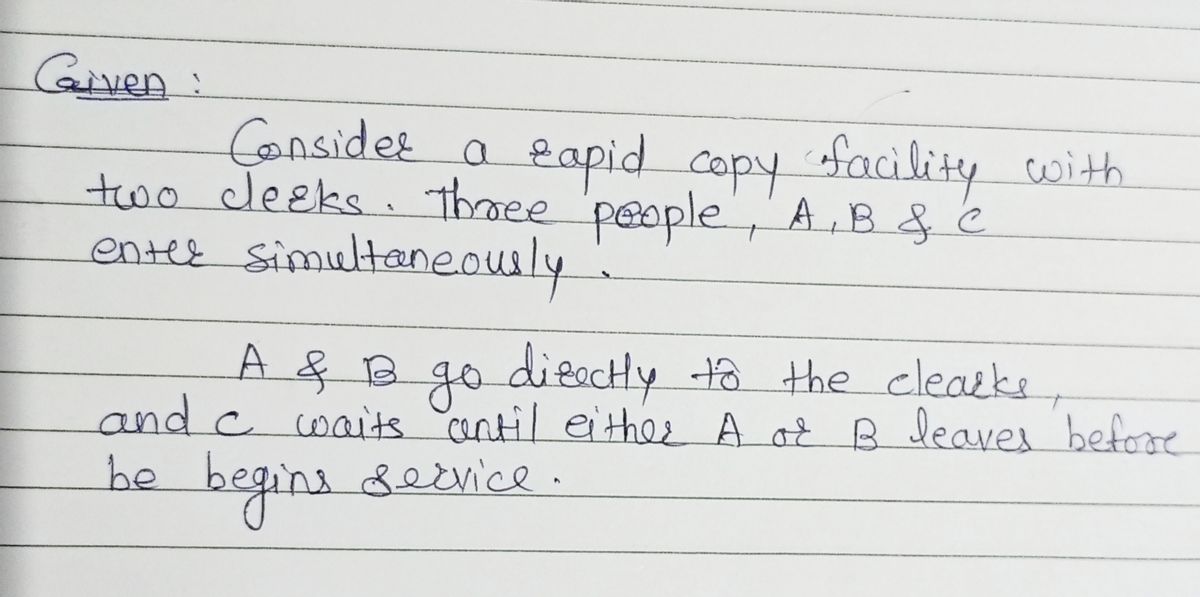 Given :
Consider a rapid copy facility with
two clerks. Three people, A, B & C
enter simultaneously.
A & B go directly to the clearks,
and C waits until either A or B leaves before
be begins service.